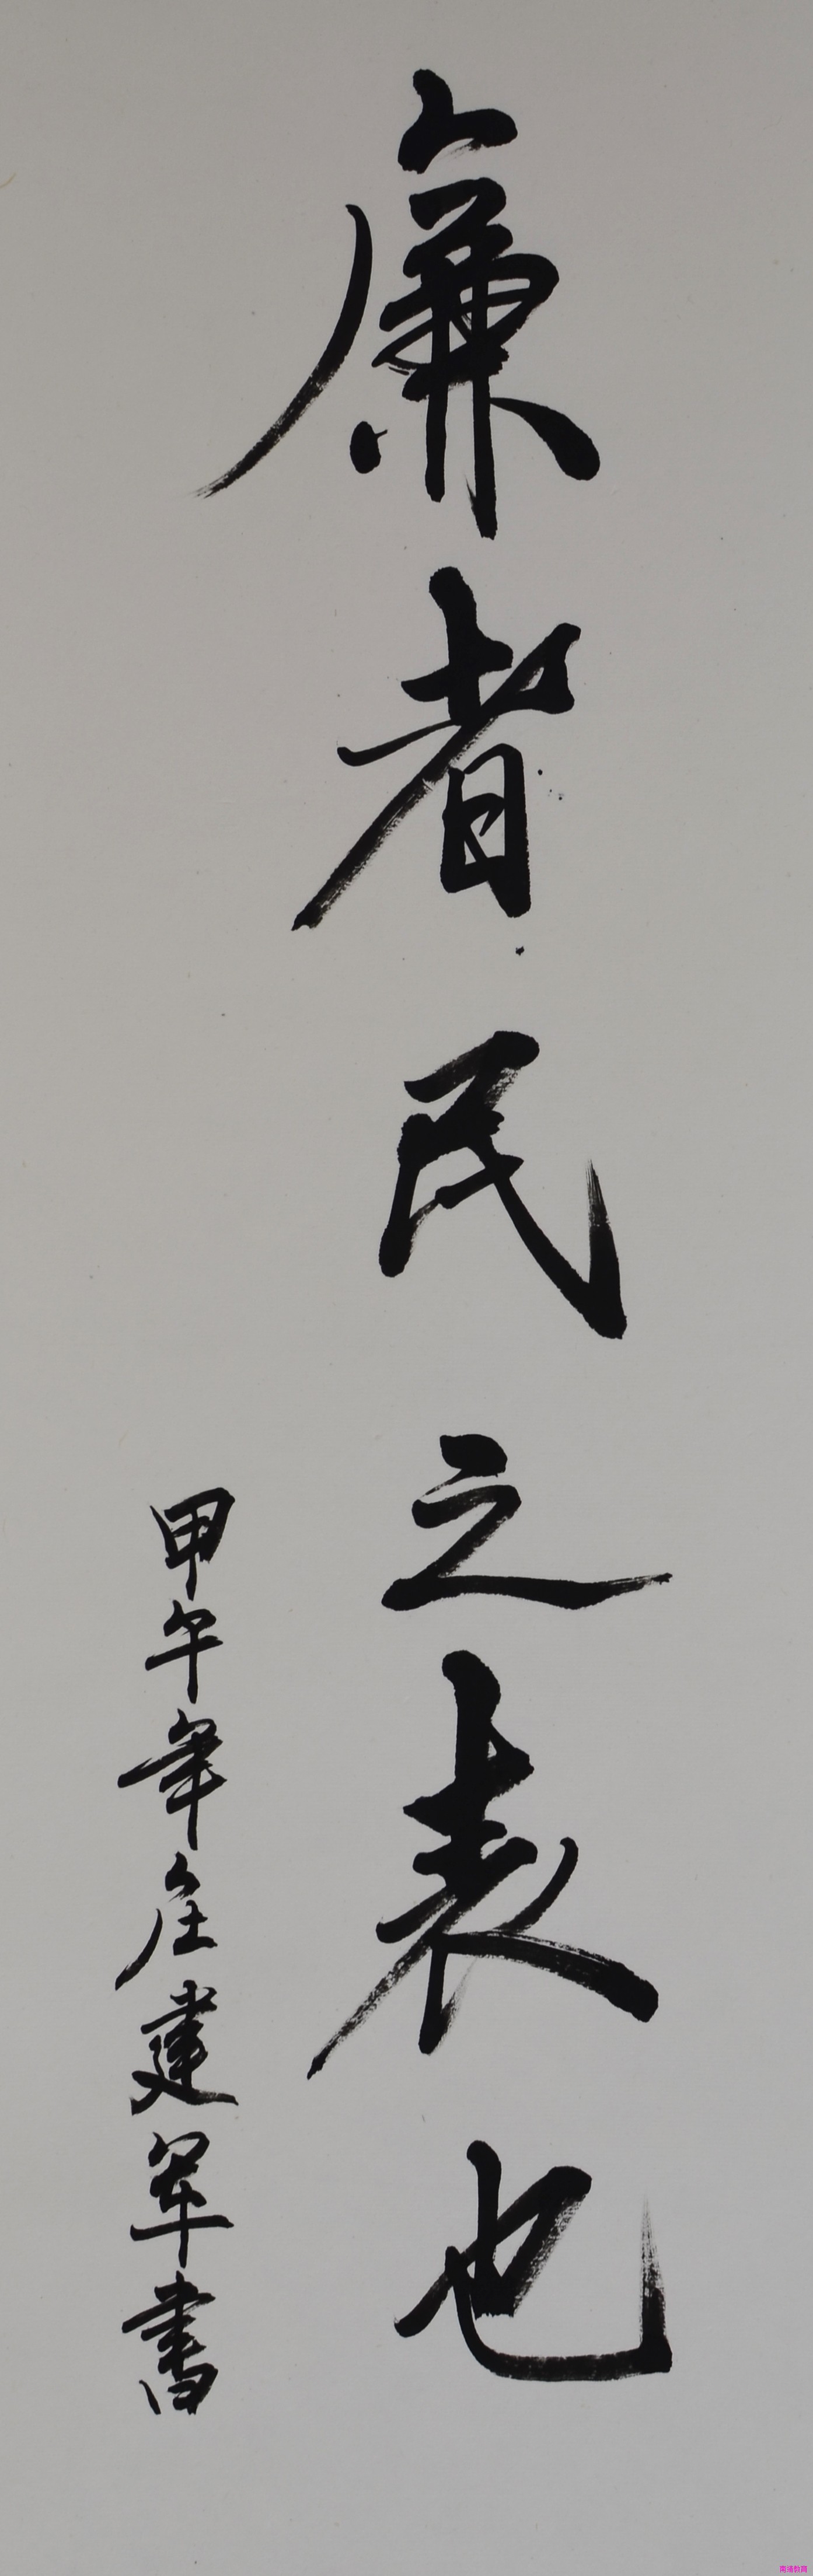 廉者民之表也
甲午年庄建军書
南浦教网